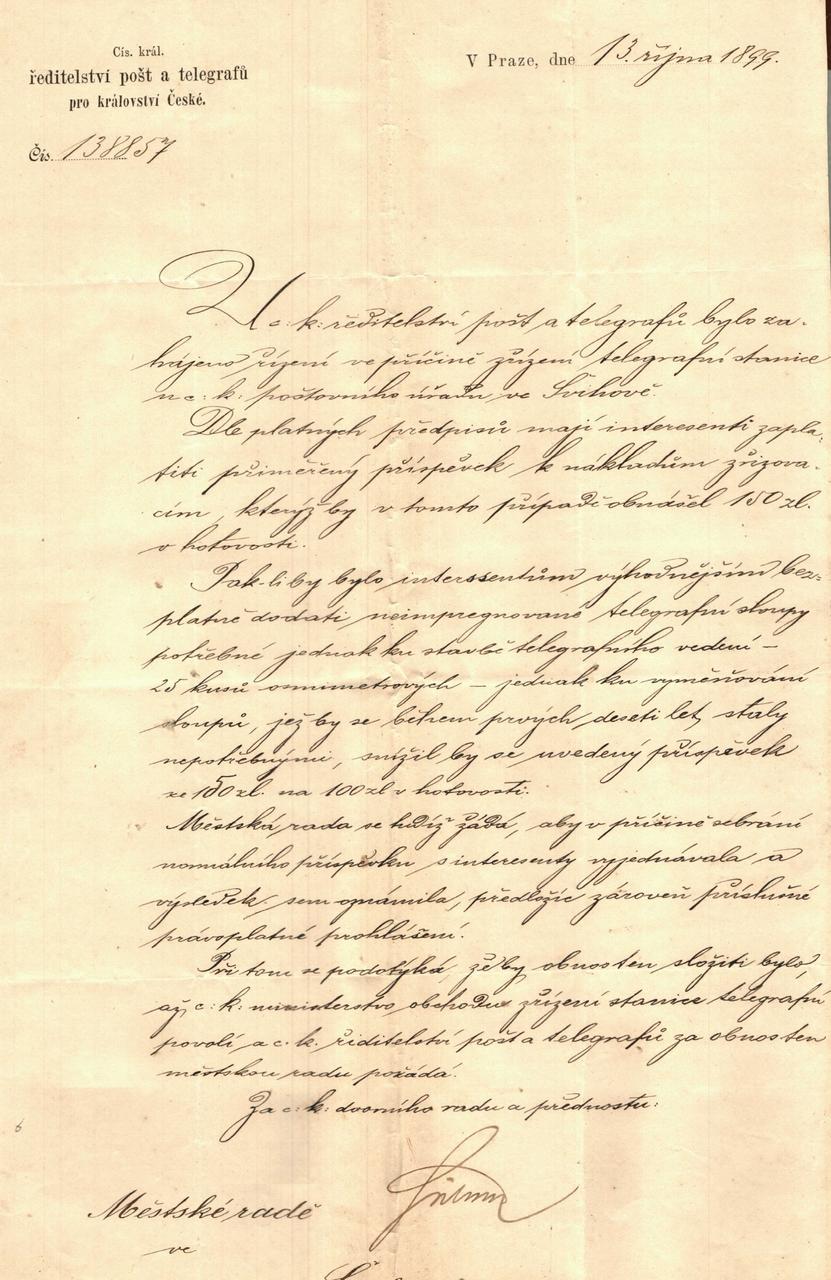 Cís. král.
ředitelství pošt a telegrafů
pro království České.
V Praze, dne 13. října 1899.
Čís. 138857
U c: k: ředitelství pošt a telegrafů bylo za-
hájeno řízení ve příčině zřízení telegrafní stanice
u c: k: poštovního úřadu ve Švihově.
Dle platných předpisů mají interesenti zapla-
titi přiměřený příspěvek k nákladům zřizova-
cím, kterýž by v tomto případě obnášel 150 zl.
v hotovosti.
Pak-li by bylo interssentům výhodnějším bez-
platně dodati neimpregnované telegrafní sloupy
potřebné jednak ku stavbě telegrafního vedení –
25 kusů osmimetrových – jednak ku vyměňování
sloupů, jež by se během prvých deseti let staly
nepotřebnými, snížil by se uvedený příspěvek
ze 150 zl. na 100 zl v hotovosti.
Městská rada se tudíž žádá, aby v příčině sebrání
normálního příspěvku s interesenty vyjednávala a
výsledek sem oznámila, předložíc zároveň příslušné
právoplatné prohlášení.
Při tom se podotýká, že by obnos ten složiti bylo,
až c: k: ministerstvo obchodu zřízení stanice telegrafní
povolí a c. k. řiditelství pošt a telegrafů za obnos ten
městskou radu požádá.
Za c: k: dvorního radu a přednostu:
Městské radě
ve
6